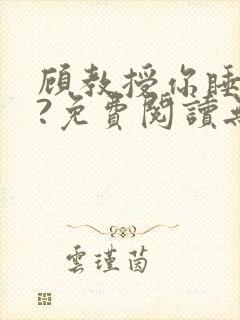 顧教授你睡
?免費閱讀
雲瑾茵